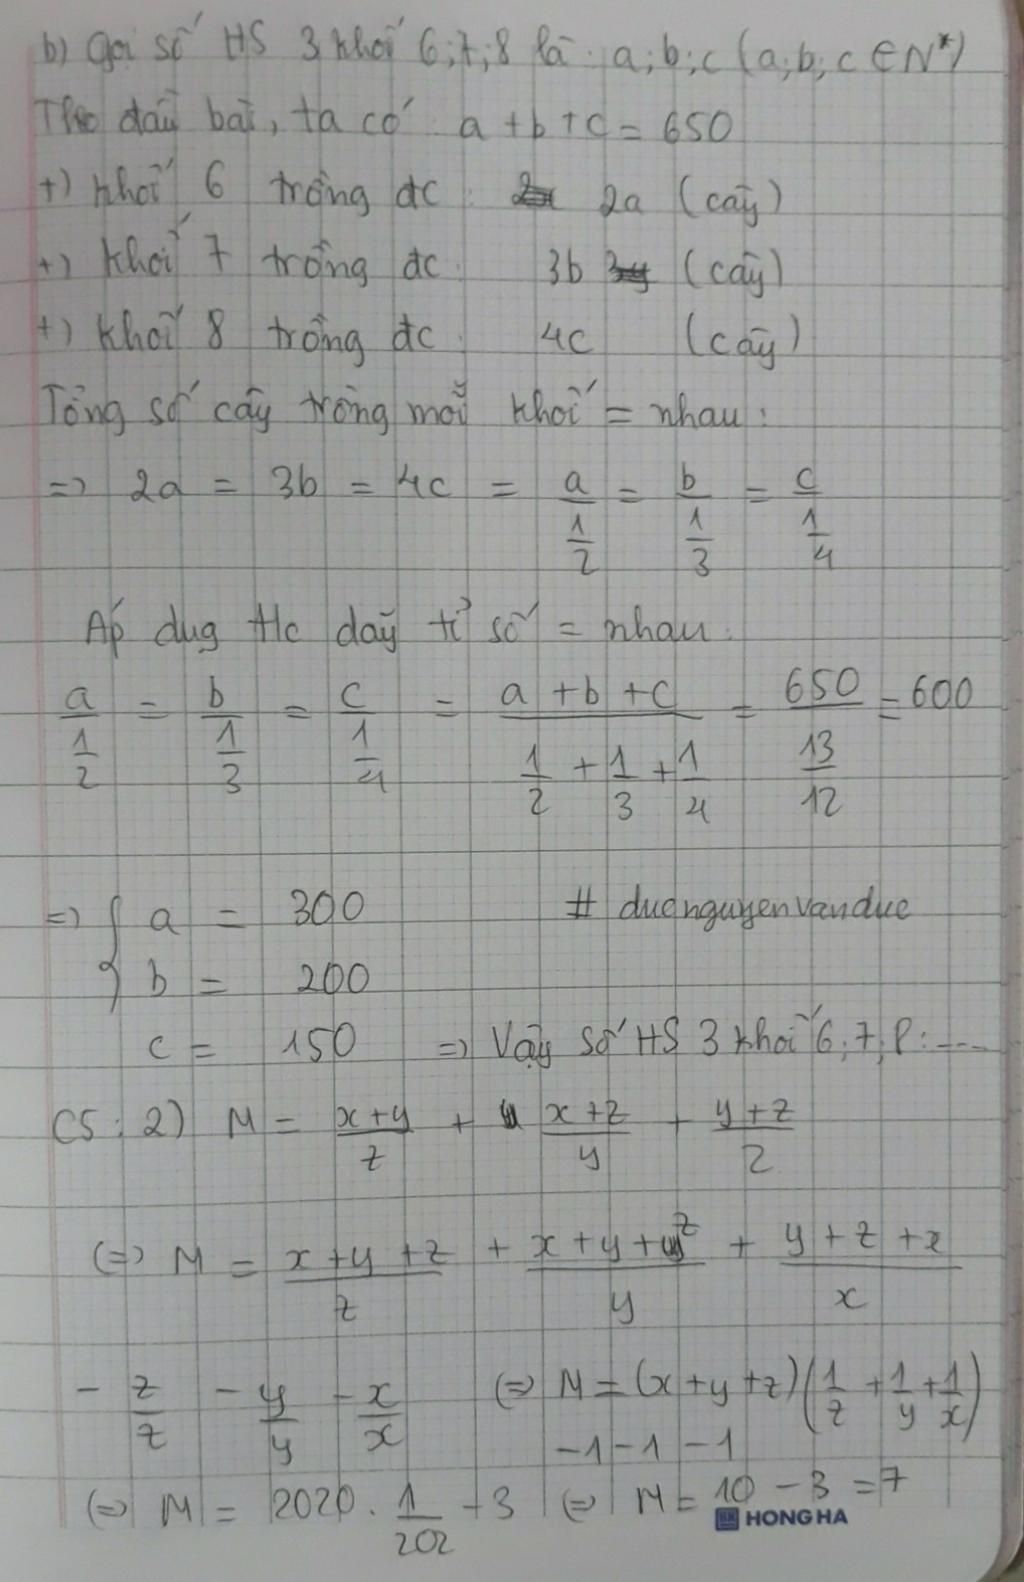 b) Gọi số HS 3 khối 6;7;8 là: a;b;c (a;b;c ∈ N*)
Theo đầu bài, ta có: a + b + c = 650
+) Khối 6 trồng đc: 2a (cây)
+) Khối 7 trồng đc: 3b (cây)
+) Khối 8 trồng đc: 4c (cây)
Tổng số cây trồng mỗi khối = nhau:
=> 2a = 3b = 4c = a/(1/2) = b/(1/3) = c/(1/4)
Áp dụg t/c dãy tỉ số = nhau:
a/(1/2) = b/(1/3) = c/(1/4) = (a + b + c)/(1/2 + 1/3 + 1/4) = 650/(13/12) = 600
=> { a = 300 # ducnguyenvanduc
b = 200
c = 150 => Vậy số HS 3 khối 6;7;8: ....
C5: 2) M = (x+y)/z + (x+z)/y + (y+z)/2
(=) M = (x+y+z)/z + (x+y+z)/y + (y+z+x)/x
- z/z - y/y - x/x (=) M = (x+y+z)(1/z + 1/y + 1/x)
-1 -1 -1
(=) M = 2020 . 1/202 - 3 (=) M = 10 - 3 = 7
HONG HA